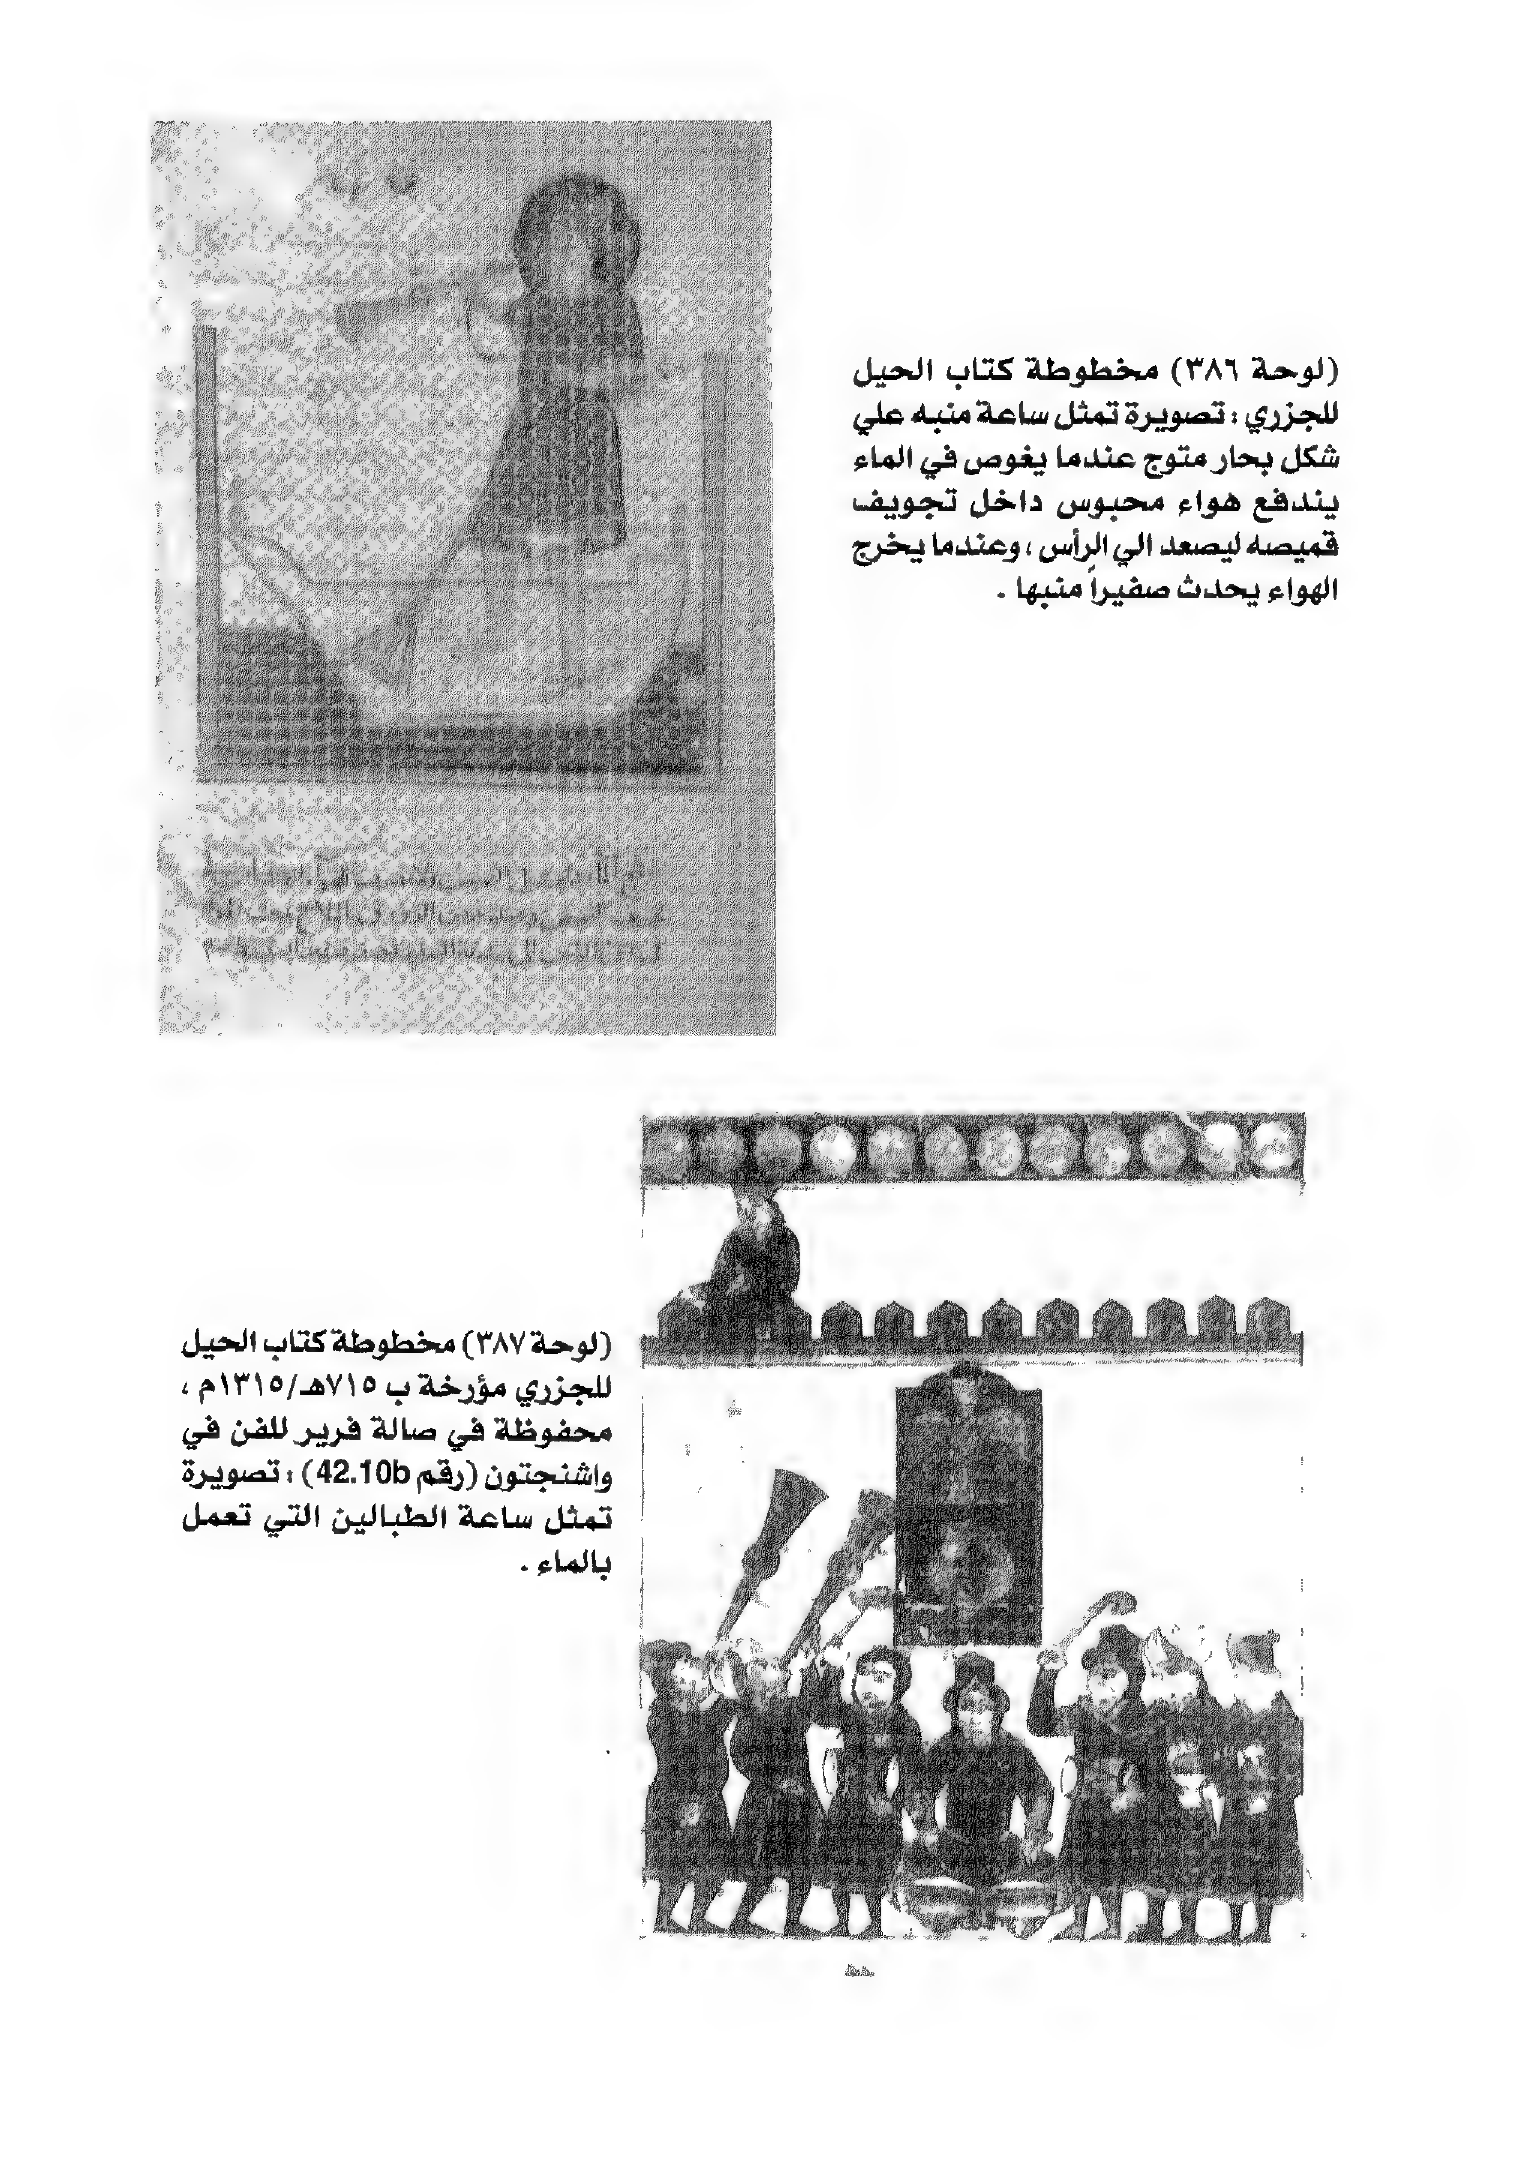 (لوحة ٣٨٦) مخطوطة كتاب الحيل
للجزري : تصويرة تمثل ساعة منبه علي
شكل بحار متوج عندما يغوص في الماء
يندفع هواء محبوس داخل تجويف
قميصه ليصعد الي الرأس ، وعندما يخرج
الهواء يحدث صفيراً منبها .
(لوحة ٣٨٧) مخطوطة كتاب الحيل
للجزري مؤرخة ب ٧١٥هـ/١٣١٥م ،
محفوظة في صالة فرير للفن في
واشنجتون (رقم 42.10b) : تصويرة
تمثل ساعة الطبالين التي تعمل
بالماء .